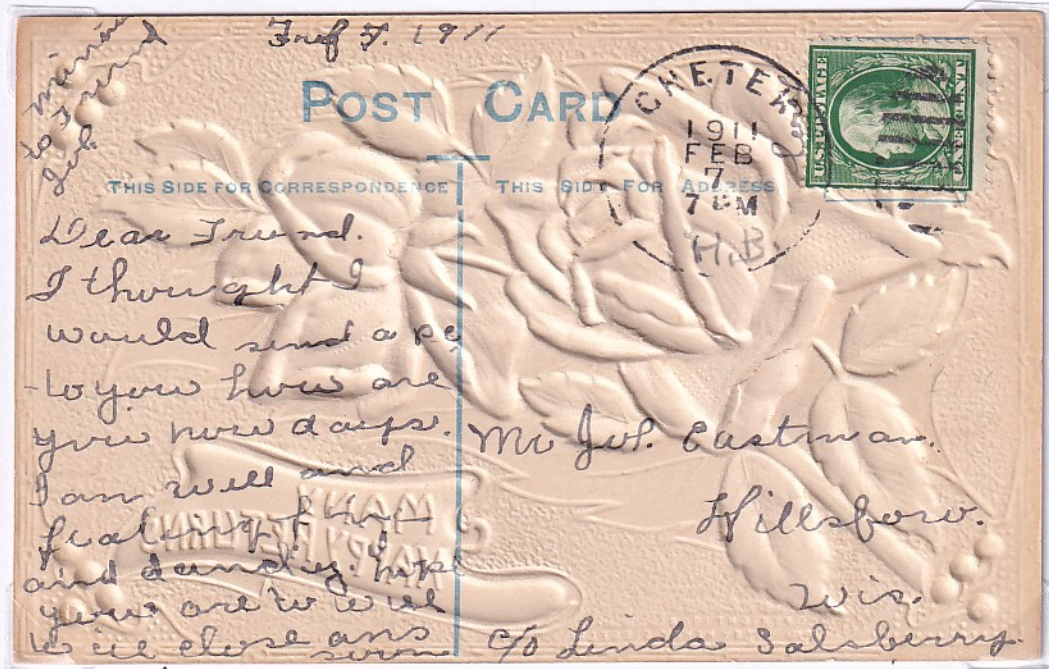 Feb 7. 1911
Minnie
to Friend
Jul.
POST CARD
THIS SIDE FOR CORRESPONDENCE
THIS SIDE FOR ADDRESS
1911
FEB
7
7 PM
H.B.
U.S. POSTAGE
ONE CENT
Dear Friend.
I thought I
would send a pc
to you how are
you now days.
I am well and
fealing fine
and dandy. hope
you are to well
will close ans
soon
Mr Jul. Eastman.
Hillsboro.
Wis.
c/o Linda Salsberry.
MANY
HAPPY RETURNS